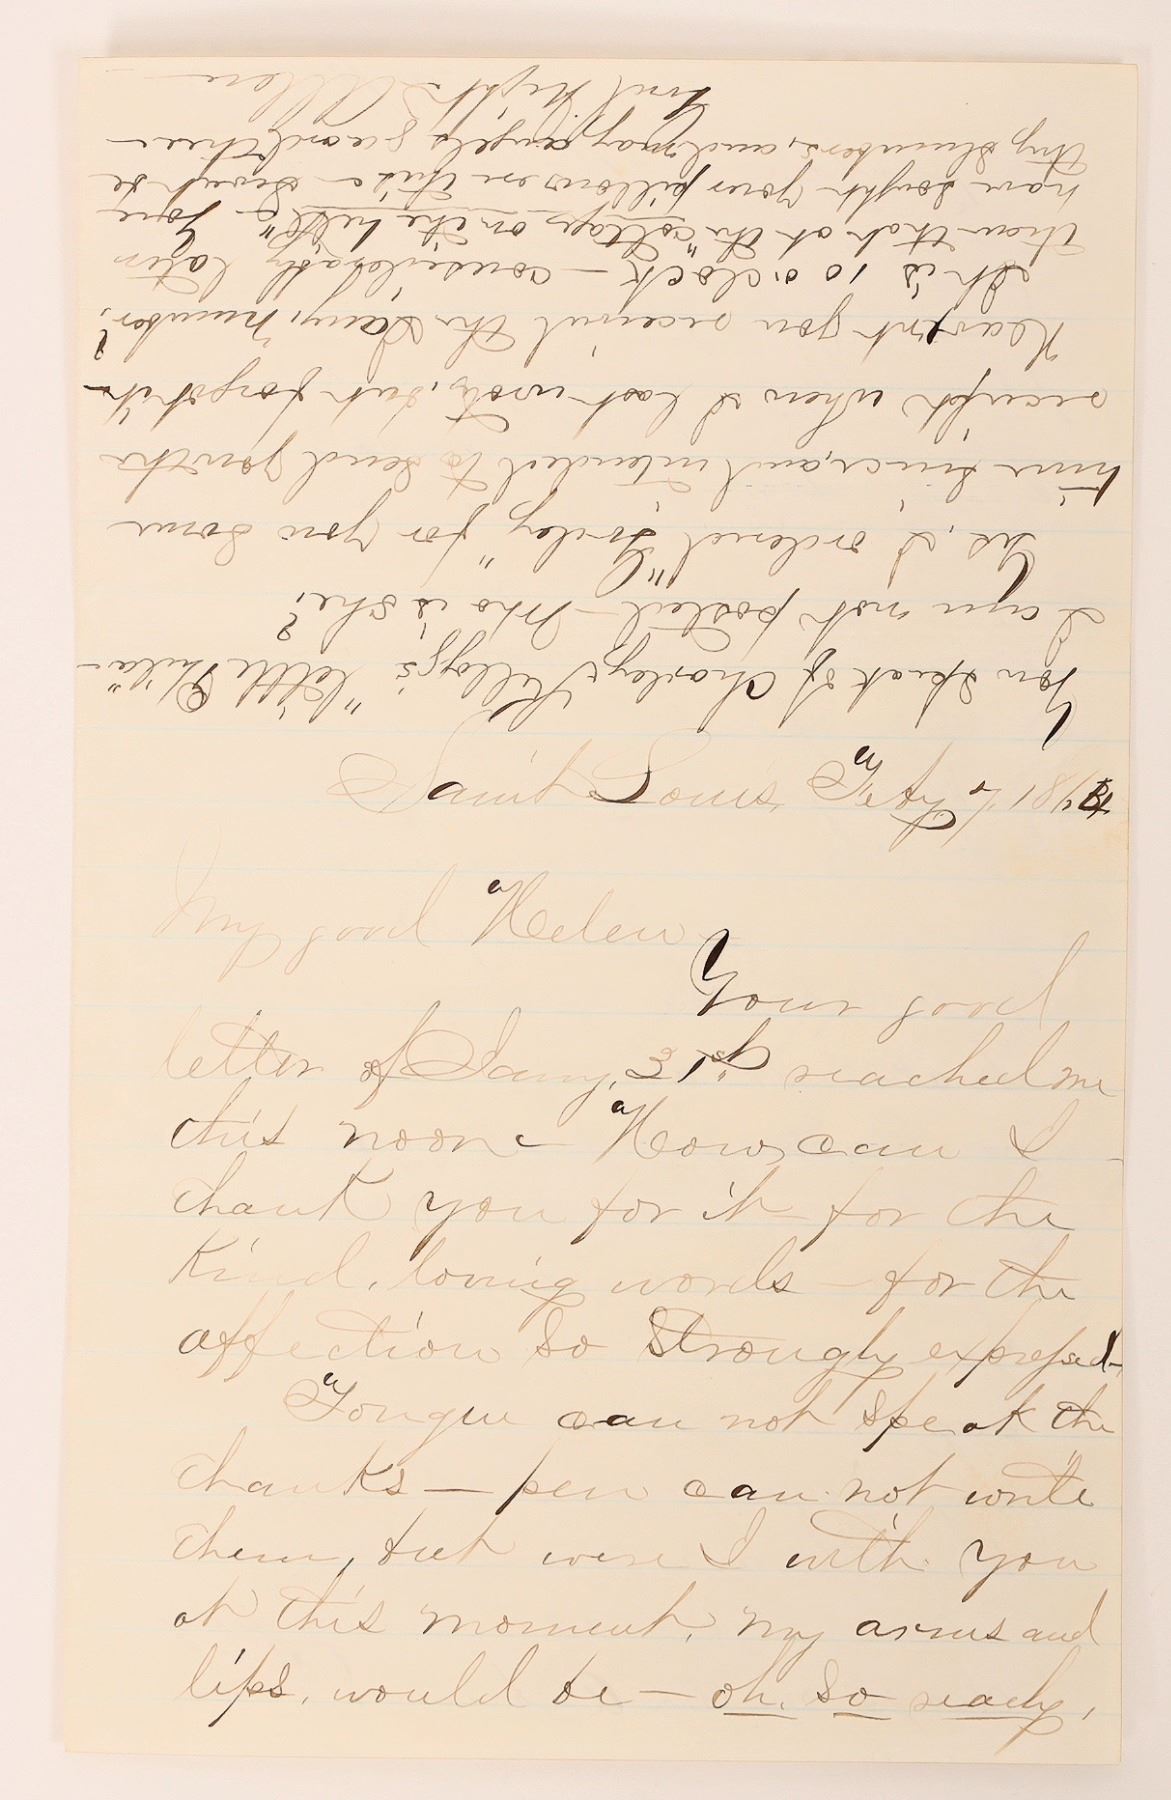 Saint Louis, Feby 6/ 187
My good Helen
Your good
letter of Jany, 31st reached me
this noon - How can I
thank you for it - for the
kind, loving words - for the
affection so strongly expressed -
Tongue can not speak the
thanks — pen can not write
them, but were I with you
at this moment, my arms and
lips, would be — oh, so ready,
You speak of Charley Kellogg's "little Phila" -
I am not posted - Who is she?
Yes, I ordered "Godey" for you some
time since, and intended to send you the
receipt when I last wrote, but forgot it -
Haven't you received the Jany, number?
It is 10 o'clock - considerably later
than that at the "cottage on the hill" &
have sought your pillow ere this -
thy slumbers, and may angels guard thee -
Good Night - Allen